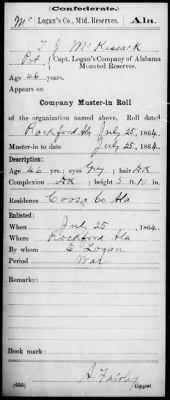 Confederate.
Mc Logan's Co., Mtd. Reserves. Ala.
T J McKissack
Pvt, Capt. Logan's Company of Alabama
Mounted Reserves.
Age 46 years.
Appears on
Company Muster-in Roll
of the organization named above. Roll dated
Rockford Ala July 25, 1864.
Muster-in to date July 25, 1864.
Description:
Age 46 yrs.; eyes Grey; hair DK
Complexion DK; height 5 ft. 10 in.
Residence Coosa Co Ala
Enlisted:
When July 25, 1864.
Where Rockford Ala
By whom E Logan
Period War
Remarks:
Book mark:
A Fairley
(655) Copyist.